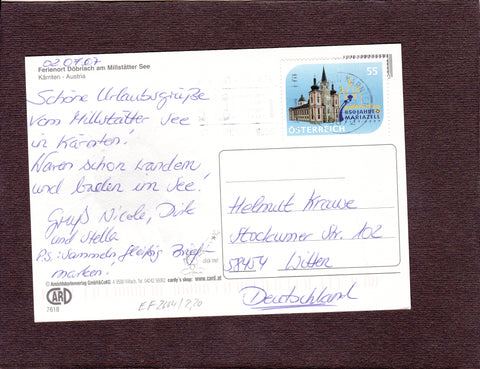 02.07.07
Ferienort Döbriach am Millstätter See
Kärnten - Austria
Schöne Urlaubsgrüße
vom Millstätter See
in Kärnten!
Waren schon wandern
und baden im See!
Gruß Nicole, Dirk
und Stella
P.S.: Sammeln fleißig Brief-
marken!
55
850 JAHRE
MARIAZELL
ÖSTERREICH
Helmut Krause
Stockumer Str. 102
58454 Witten
Deutschland
© Ansichtskartenverlag GmbH&CoKG
cardy's shop: www.card.at
CARD
7618